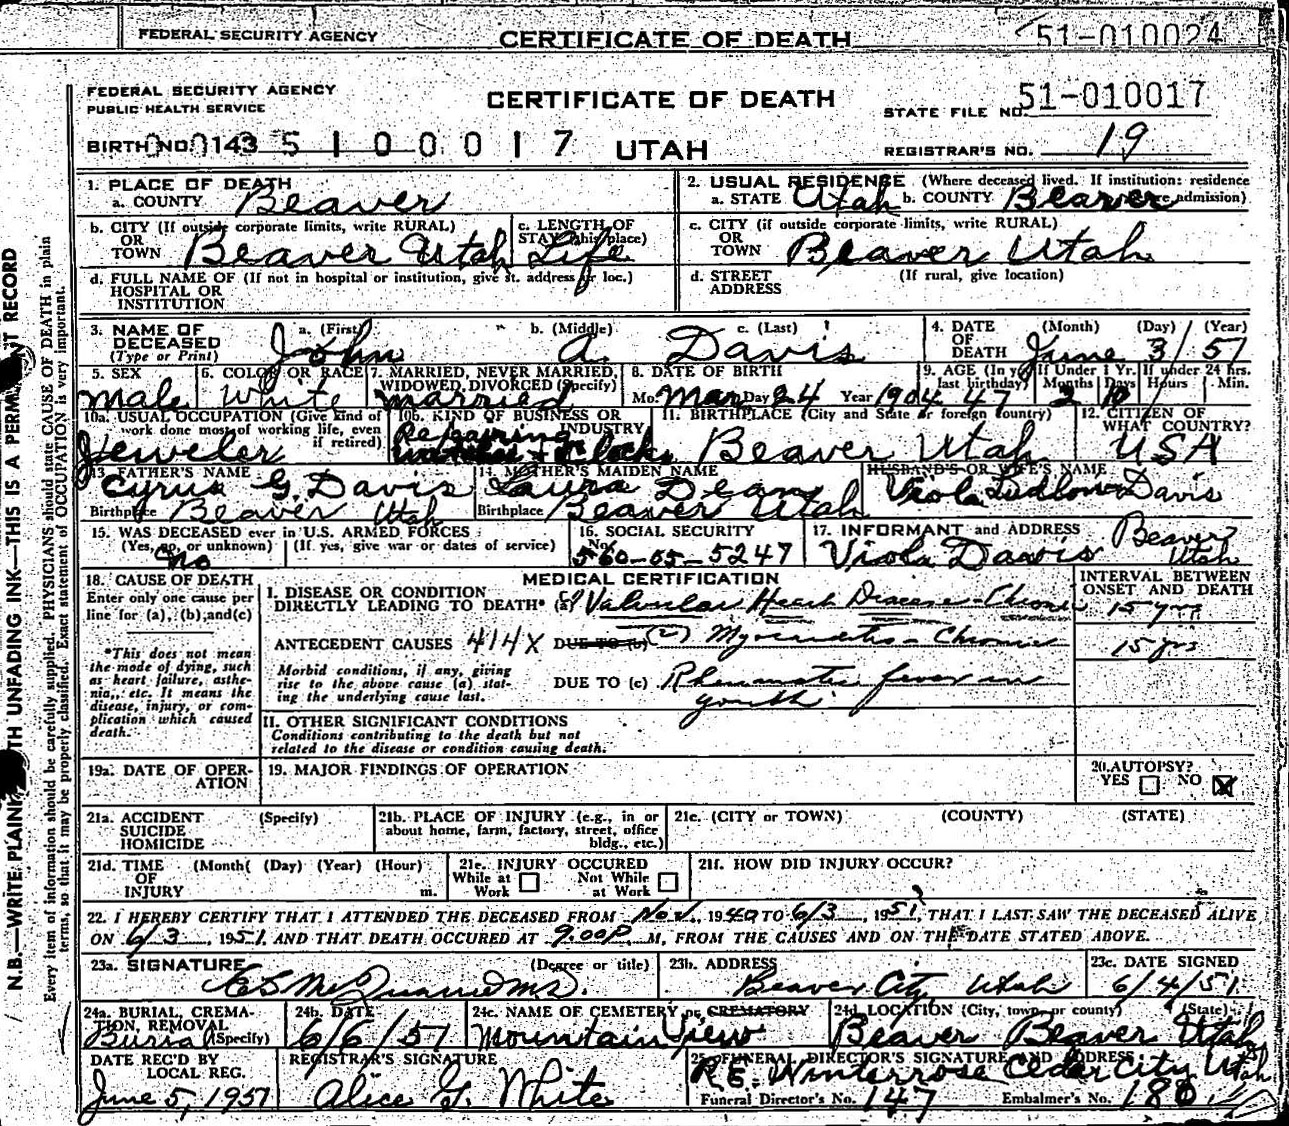 FEDERAL SECURITY AGENCY CERTIFICATE OF DEATH 51-010024
FEDERAL SECURITY AGENCY
PUBLIC HEALTH SERVICE
CERTIFICATE OF DEATH
STATE FILE NO. 51-010017
BIRTH NO. 143 5 1 0 0 0 1 7 UTAH
REGISTRAR'S NO. 19
1. PLACE OF DEATH
a. COUNTY Beaver
2. USUAL RESIDENCE (Where deceased lived. If institution: residence
a. STATE Utah b. COUNTY Beaver admission)
b. CITY (If outside corporate limits, write RURAL)
OR
TOWN Beaver Utah
c. LENGTH OF
STAY (this place) Life
c. CITY (if outside corporate limits, write RURAL)
OR
TOWN Beaver Utah
d. FULL NAME OF (If not in hospital or institution, give st. address or loc.)
HOSPITAL OR
INSTITUTION
d. STREET (If rural, give location)
ADDRESS
3. NAME OF
DECEASED
(Type or Print)
a. (First) b. (Middle) c. (Last)
John A. Davis
4. DATE
OF
DEATH
(Month) (Day) (Year)
June 3/51
5. SEX
male
6. COLOR OR RACE
White
7. MARRIED, NEVER MARRIED,
WIDOWED, DIVORCED (Specify)
married
8. DATE OF BIRTH
Mo. Mar Day 24 Year 1904
9. AGE (In y If Under 1 Yr. If under 24 hrs.
last birthday) Months Days Hours Min.
47 2 10
10a. USUAL OCCUPATION (Give kind of
work done most of working life, even
if retired)
Jeweler
10b. KIND OF BUSINESS OR
INDUSTRY
Repairing
watches + Clocks
11. BIRTHPLACE (City and State or foreign country)
Beaver Utah
12. CITIZEN OF
WHAT COUNTRY?
USA
13. FATHER'S NAME
Cyrus G. Davis
Birthplace Beaver Utah
14. MOTHER'S MAIDEN NAME
Laura Dean
Birthplace Beaver Utah
HUSBAND'S OR WIFE'S NAME
Viola Ludlow Davis
15. WAS DECEASED ever in U.S. ARMED FORCES
(Yes, no, or unknown) (If yes, give war or dates of service)
no
16. SOCIAL SECURITY
No. 560-05-5247
17. INFORMANT and ADDRESS
Viola Davis Beaver Utah
18. CAUSE OF DEATH
Enter only one cause per
line for (a), (b), and (c)
*This does not mean
the mode of dying, such
as heart failure, asthe-
nia, etc. It means the
disease, injury, or com-
plication which caused
death.
MEDICAL CERTIFICATION
INTERVAL BETWEEN
ONSET AND DEATH
I. DISEASE OR CONDITION
DIRECTLY LEADING TO DEATH* (a) Valvular Heart Disease-Chronic 15 yrs
ANTECEDENT CAUSES 414X DUE TO (b) (2) Myocarditis - Chronic 15 yrs
Morbid conditions, if any, giving
rise to the above cause (a) stat-
ing the underlying cause last.
DUE TO (c) Rheumatic fever in
youth
II. OTHER SIGNIFICANT CONDITIONS
Conditions contributing to the death but not
related to the disease or condition causing death.
19a. DATE OF OPER-
ATION
19. MAJOR FINDINGS OF OPERATION
20. AUTOPSY?
YES NO
21a. ACCIDENT (Specify)
SUICIDE
HOMICIDE
21b. PLACE OF INJURY (e.g., in or
about home, farm, factory, street, office
bldg., etc.)
21c. (CITY or TOWN) (COUNTY) (STATE)
21d. TIME (Month( (Day) (Year) (Hour)
OF
INJURY m.
21e. INJURY OCCURED
While at Not While
Work at Work
21f. HOW DID INJURY OCCUR?
22. I HEREBY CERTIFY THAT I ATTENDED THE DECEASED FROM Nov., 1940 TO 6/3, 1951, THAT I LAST SAW THE DECEASED ALIVE
ON 6/3, 1951, AND THAT DEATH OCCURED AT 9:00P M, FROM THE CAUSES AND ON THE DATE STATED ABOVE.
23a. SIGNATURE (Degree or title)
M.D.
23b. ADDRESS
Beaver City Utah
23c. DATE SIGNED
6/4/51
24a. BURIAL, CREMA-
TION, REMOVAL
(Specify)
Burial
24b. DATE
6/6/51
24c. NAME OF CEMETERY or CREMATORY
Mountain View
24d. LOCATION (City, town, or county) (State)
Beaver Beaver Utah
DATE REC'D BY
LOCAL REG.
June 5, 1951
REGISTRAR'S SIGNATURE
Alice G. White
25. FUNERAL DIRECTOR'S SIGNATURE AND ADDRESS
R.E. Winterrose Cedar City Utah
Funeral Director's No. 147 Embalmer's No. 180
N.B.—WRITE PLAINLY WITH UNFADING INK—THIS IS A PERMANENT RECORD
Every item of information should be carefully supplied. PHYSICIANS should state CAUSE OF DEATH in plain
terms, so that it may be properly classified. Exact statement of OCCUPATION is very important.